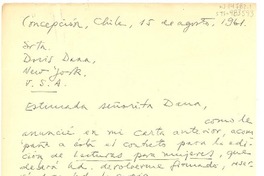 Concepción, Chile, 15 de agosto, 1961.
Srta.
Doris Dana,
New York.
U.S.A.
Estimada señorita Dana,
como de
anuncié en mi carta anterior, acom
paño a ésta el contrato para la edi
ción de Lecturas para mujeres, que
deberá Ud. devolverme firmado,